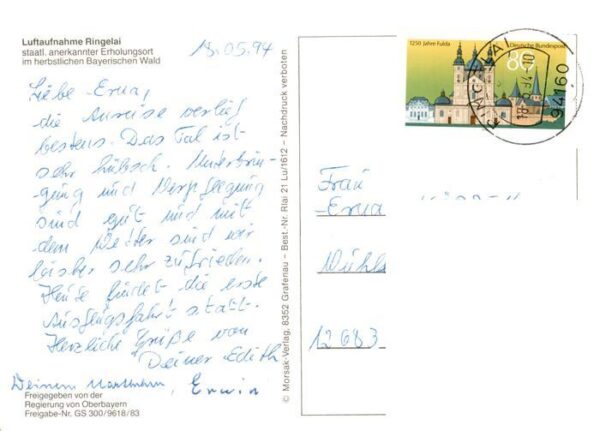 Luftaufnahme Ringelai
staatl. anerkannter Erholungsort
im herbstlichen Bayerischen Wald
13.05.94
Liebe Erna,
die Anreise verlief
bestens. Das Tal ist
sehr hübsch. Unterbrin-
gung und Verpflegung
sind gut und mit
dem Wetter sind wir
bisher sehr zufrieden.
Heute findet die erste
Ausflugsfahrt statt.
Herzliche Grüße von
Deiner Edith
Erwin
Freigegeben von der
Regierung von Oberbayern
Freigabe-Nr. GS 300/9618/83
© Morsak-Verlag, 8352 Grafenau – Best.-Nr. Rial 21 Lu/1612 – Nachdruck verboten
1250 Jahre Fulda
Deutsche Bundespost
80
RINGELAI
94160
Frau
Erna
12683